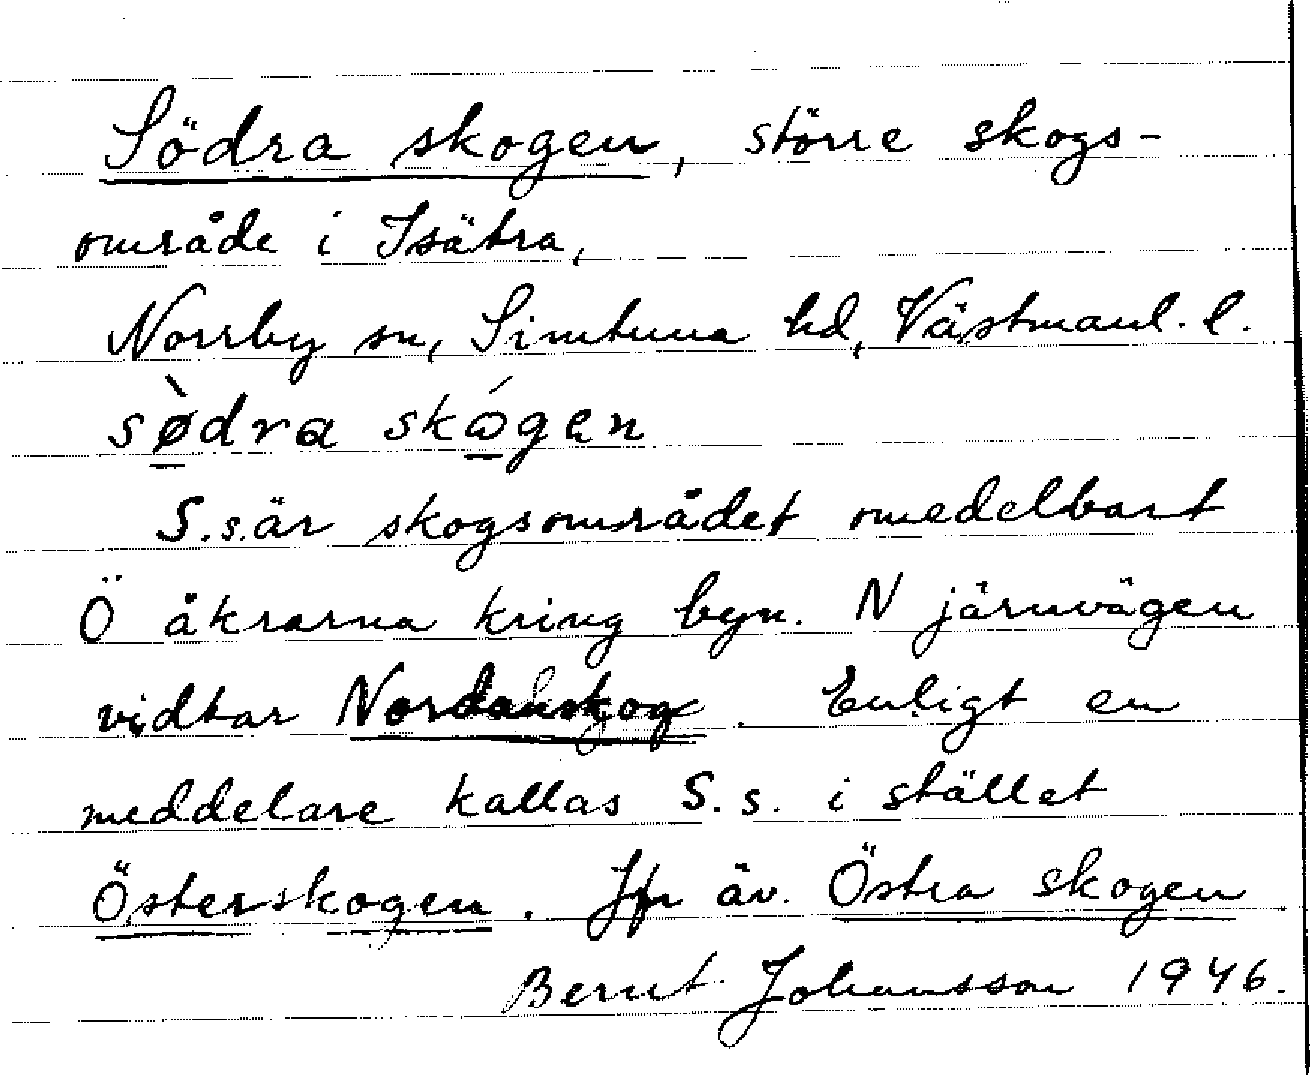 Södra skogen, större skogs-
område i Isätra,
Norrby sn, Simtuna hd, Västmanl. l.
sø̀dra skɷ́gen
S.s. är skogsområdet omedelbart
Ö åkrarna kring byn. N järnvägen
vidtar Nordanskog. Enligt en
meddelare kallas S. s. i stället
Österskogen. Jfr äv. Östra skogen
Bernt Johansson 1946.